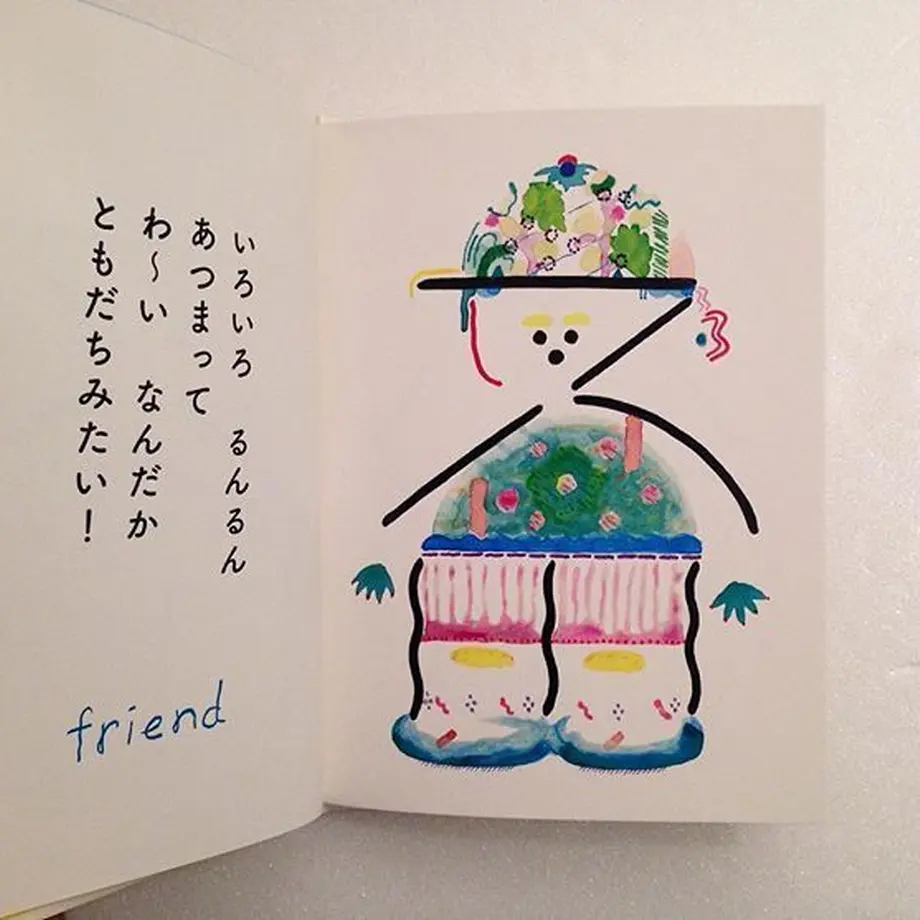 いろいろ　るんるん
あつまって
わ～い　なんだか
ともだちみたい！
friend